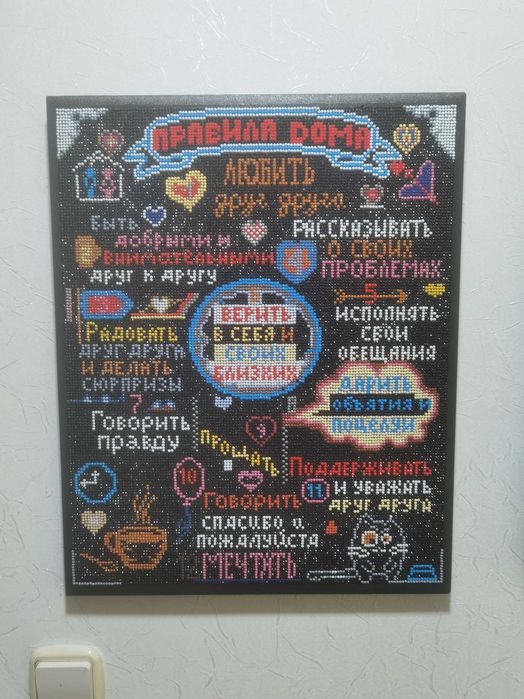 ПРАВИЛА ДОМА
ЛЮБИТЬ
друг друга
БЫТЬ
добрыми и
внимательными
друг к другу
РАССКАЗЫВАТЬ
О СВОИХ
ПРОБЛЕМАХ
5
ИСПОЛНЯТЬ
СВОИ
ОБЕЩАНИЯ
ВЕРИТЬ
В СЕБЯ И
СВОИХ
БЛИЗКИХ
РАДОВАТЬ
ДРУГ ДРУГА
И ДЕЛАТЬ
СЮРПРИЗЫ
7
Говорить
правду
ДАРИТЬ
ОБЪЯТИЯ И
ПОЦЕЛУИ
9
ПРОЩАТЬ
10
ГОВОРИТЬ
СПАСИБО и
ПОЖАЛУЙСТА
11
ПОДДЕРЖИВАТЬ
И УВАЖАТЬ
ДРУГ ДРУГА
МЕЧТАТЬ